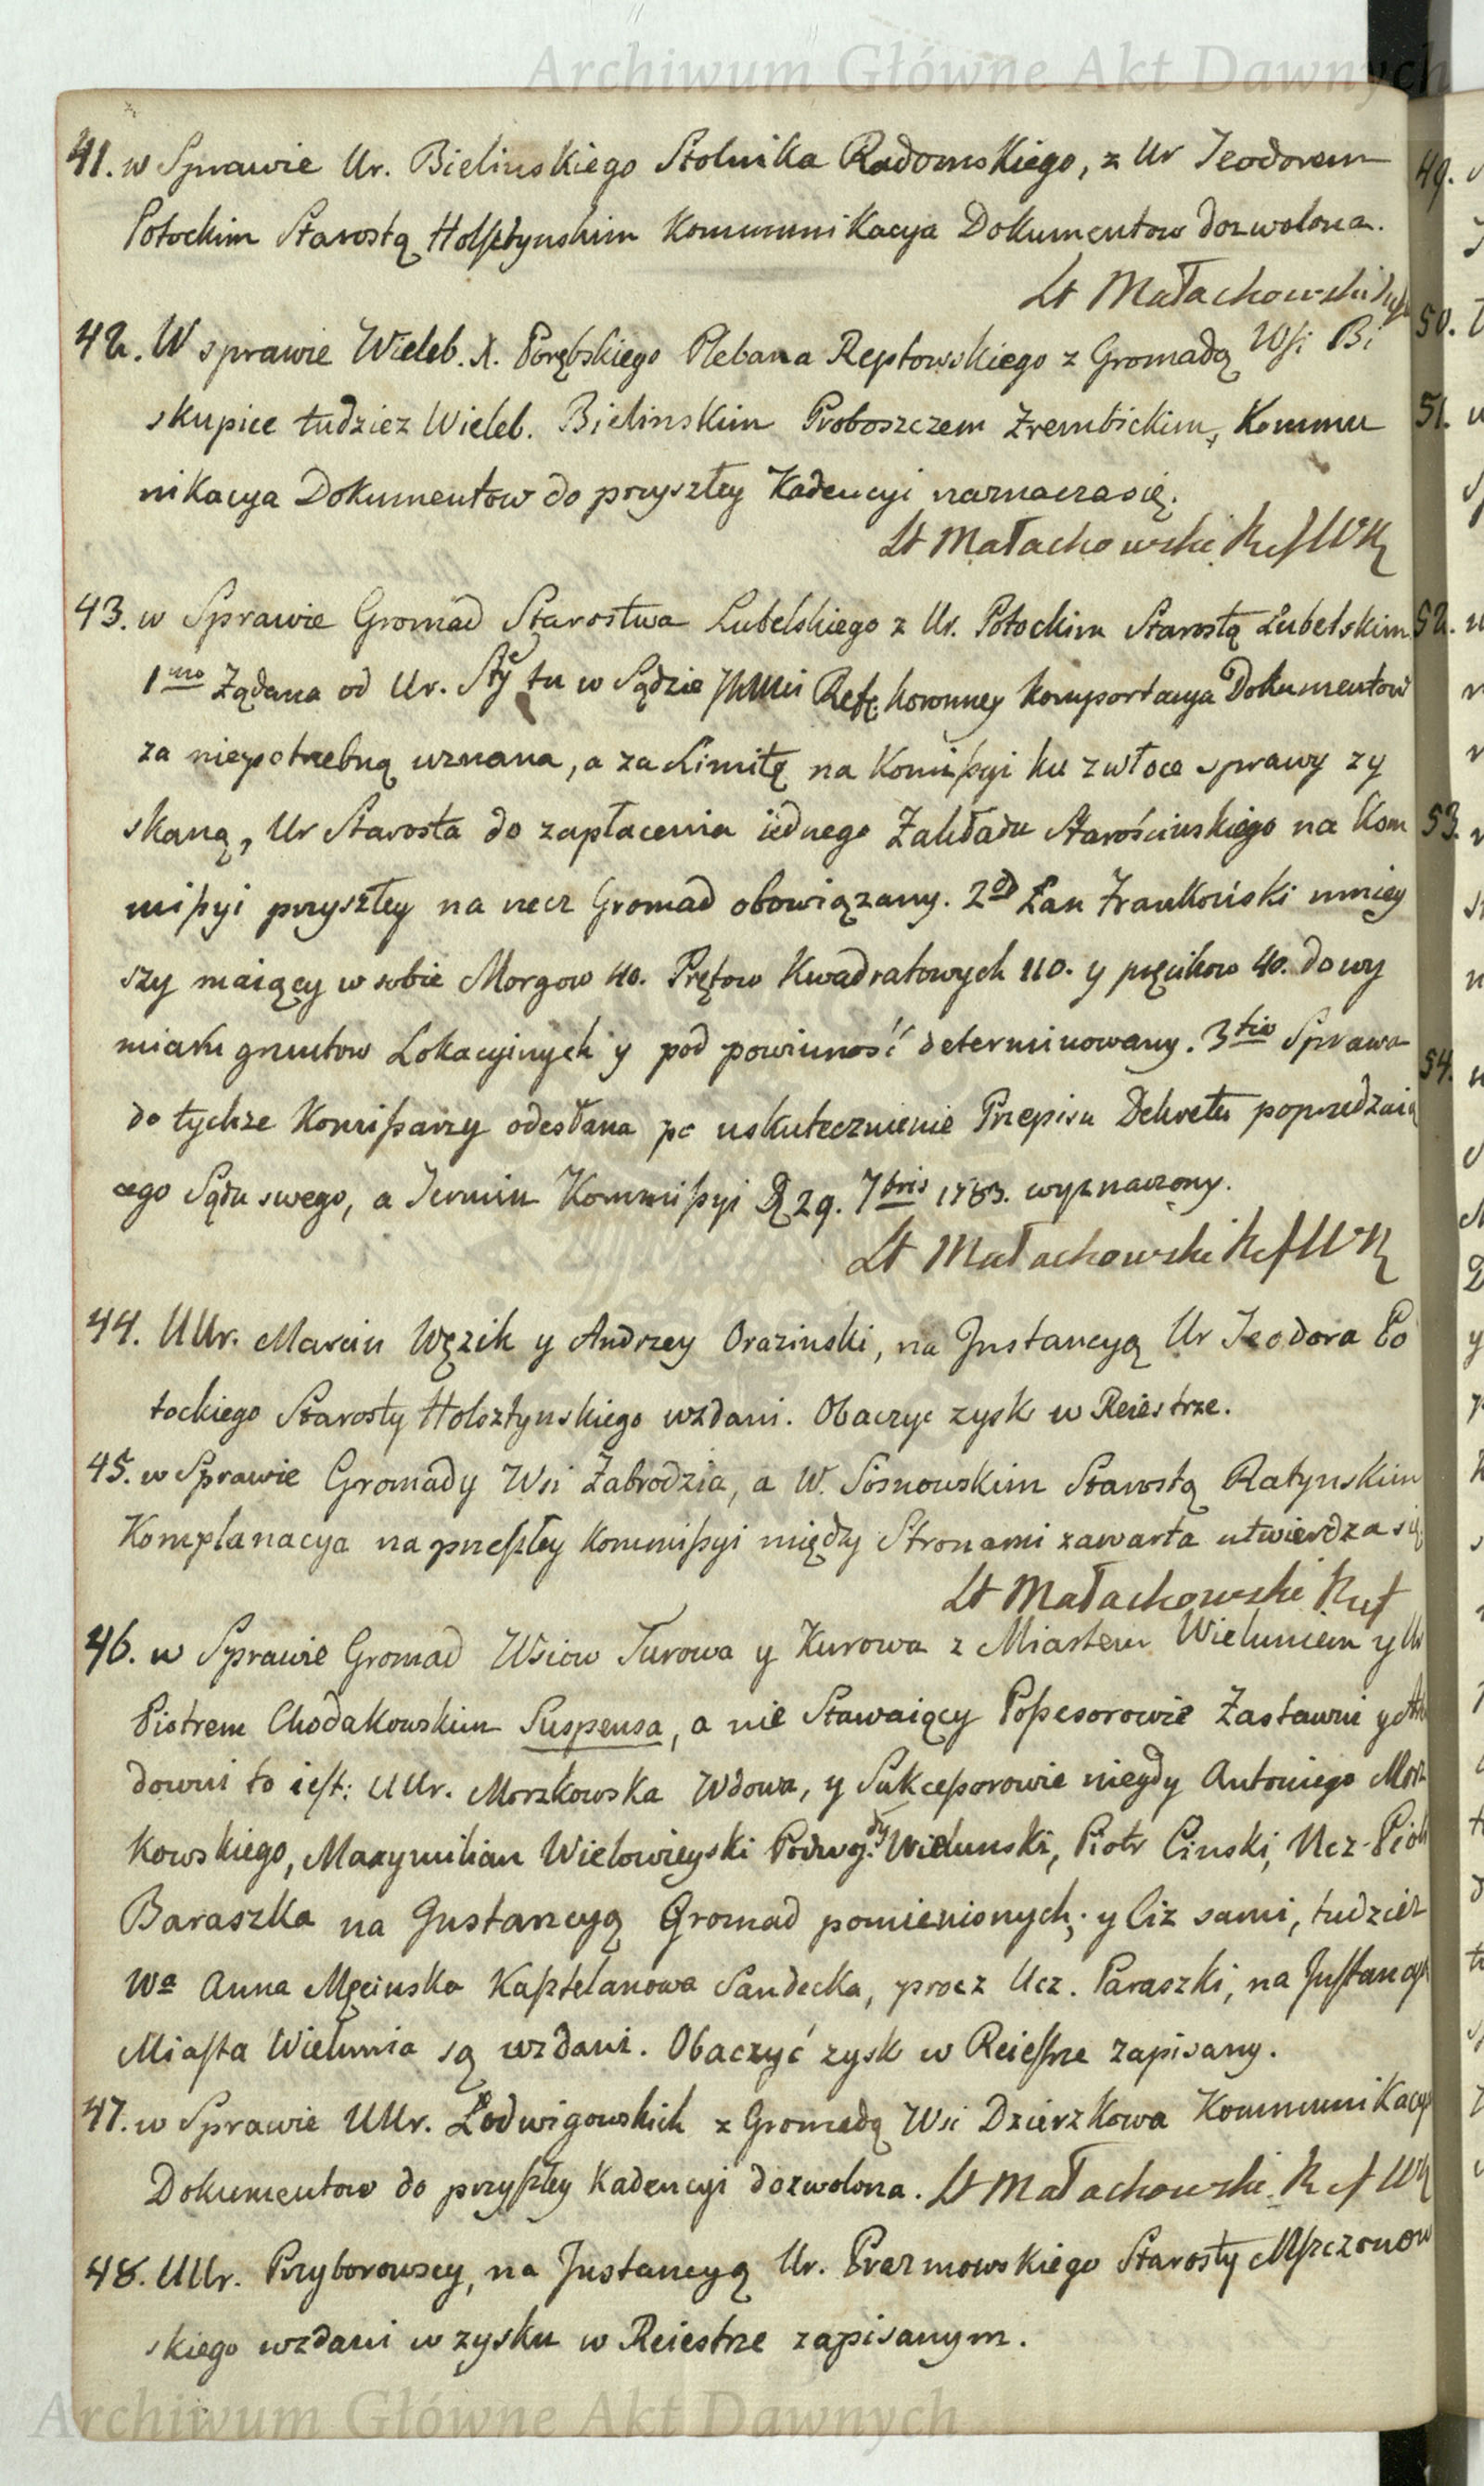 Archiwum Główne Akt Dawnych
41. w Sprawie Ur. Bielinskiego Stolnika Radomskiego, z Ur Teodorem
Potockim Starostą Holsztynskim Kommunikacya Dokumentow dozwolona.
Małachowski
42. W sprawie Wieleb. X. Porębskiego Plebana Reptowskiego z Gromadą Wsi Bi
skupice tudziez Wieleb. Bielinskim Proboszczem Zrembickim, Kommu
nikacya Dokumentow do przyszłey Kadencyi naznacza się.
Małachowski Ref WK
43. w Sprawie Gromad Starostwa Lubelskiego z Ur. Potockim Starostą Lubelskim
1mo Ządana od Ur. Stty tu w Sądzie Ref. Koronney Komportacya Dokumentow
za niepotrzebną uznana, a za Limitę na Komissyi ku zwłoce sprawy zy
skaną, Ur Starosta do zapłacenia iednego Zakładu Starościnskiego na Kom
missyi przyszłey na recz Gromad obowiązany. 2do Łan Frankoński mniey
szy maiący w sobie Morgow 40. Prętow Kwadratowych 110. y pręcikow 40. do wy
miaru gruntow Lokacyinych y pod powinność determinowany. 3tio Sprawa
do tychze Komissarzy odesłana po uskutecznienie Przepisu Dekretu poprzedzaią
cego Sądu swego, a Termin Kommissyi D. 29. 7bris 1783. wyznaczony.
Małachowski Ref WK
44. UUr. Marcin Węzik y Andrzey Orazinski, na Instancyą Ur Teodora Po
tockiego Starosty Holsztynskiego wzdani. Obaczyc zysk w Reiestrze.
45. w Sprawie Gromady Wsi Zabrodzia, a W. Sosnowskim Starostą Ratynskim
Komplanacya na przeszłey Kommissyi między Stronami zawarta utwierdza się
Małachowski Ref
46. w Sprawie Gromad Wsiow Turowa y Kurowa z Miastem Wieluniem y Ur
Piotrem Chodakowskim Suspensa, a nie Stawaiący Possesorowie Zastawni y Aren
downi to iest: UUr. Morzkowska Wdowa, y Sukcessorowie niegdy Antoniego Morz
kowskiego, Maxymilian Wielowieyski Podwoj. Wielunski, Piotr Cinski, Ucz. Piotr
Baraszka na Instancyą Gromad pomienionych; y Ciz sami, tudziez
Wa Anna Męcinska Kasztelanowa Sandecka, procz Ucz. Paraszki, na Instancyą
Miasta Wielunia są wzdani. Obaczyć zysk w Reiestrze zapisany.
47. w Sprawie UUr. Lodwigowskich z Gromadą Wsi Dzierzkowa Kommunikacya
Dokumentow do przyszłey Kadencyi dozwolona. Małachowski Ref WK
48. UUr. Przyborowscy, na Instancyą Ur. Prazmowskiego Starosty Mszczonow
skiego wzdani w zysku w Reiestrze zapisanym.
Archiwum Główne Akt Dawnych
49.
50.
51.
52.
53.
54.